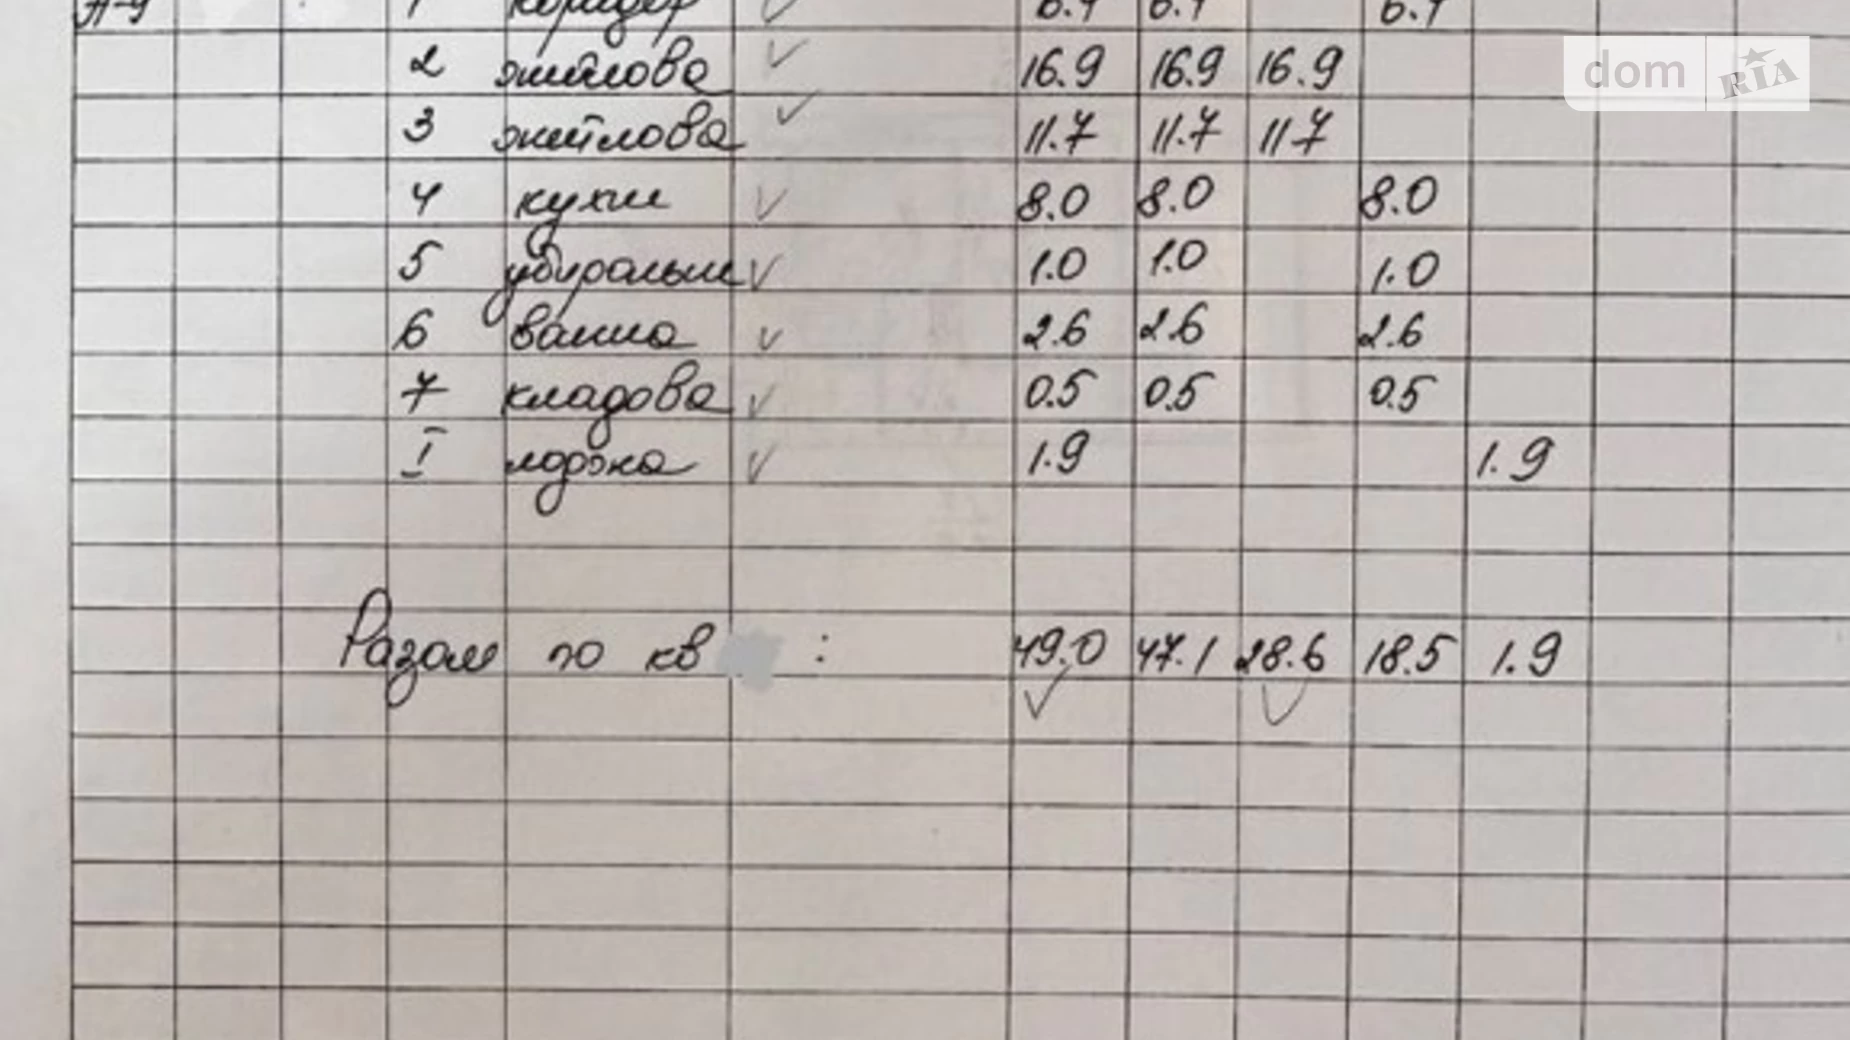 А-9 1 коридор 6.4 6.4 6.4
2 житлова 16.9 16.9 16.9
dom RIA
3 житлова 11.7 11.7 11.7
4 кухня 8.0 8.0 8.0
5 убиральня 1.0 1.0 1.0
6 ванна 2.6 2.6 2.6
7 кладова 0.5 0.5 0.5
I лоджа 1.9 1.9
Разом по кв : 49.0 47.1 28.6 18.5 1.9